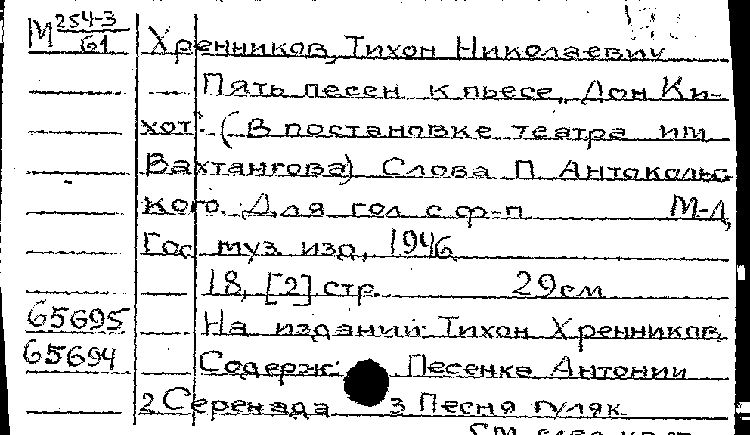 М 254-3
61
Хренников, Тихон Николаевич
Пять песен к пьесе „Дон Ки-
хот". (В постановке театра им
Вахтангова) Слова П Антокольс
кого. Для гол с ф-п М-Л,
Гос муз изд, 1946
18, [2] стр. 29 см
65695 На издании: Тихон Хренников
65694 Содерж: Песенка Антонии
2 Серенада 3 Песня гуляк